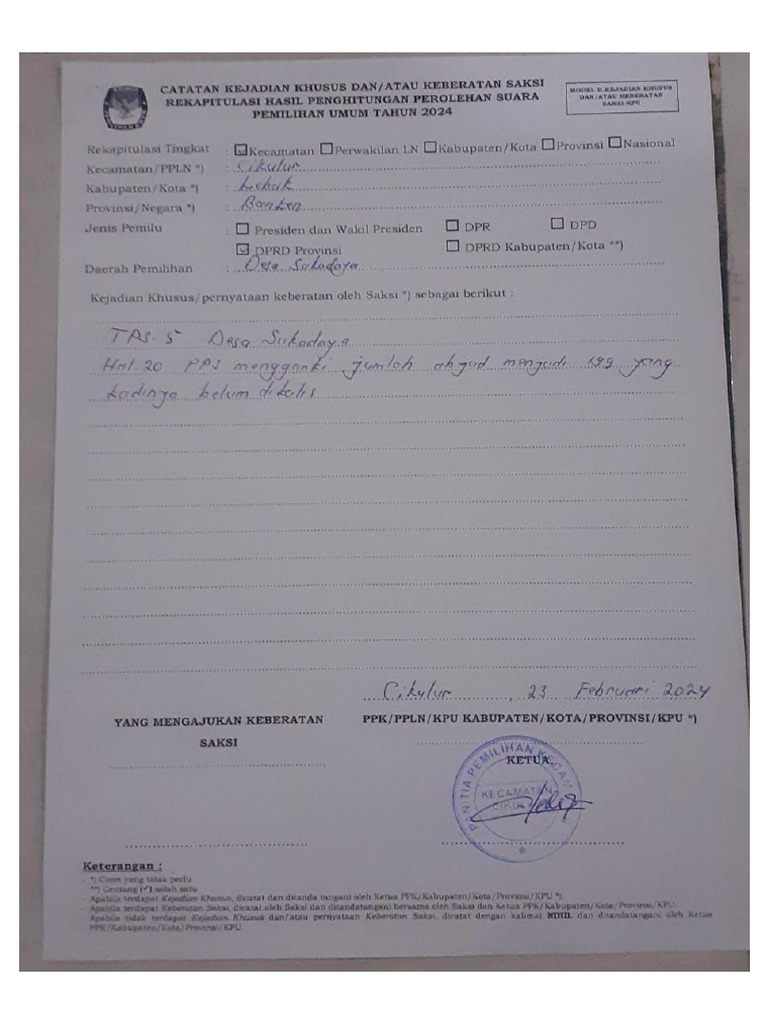 CATATAN KEJADIAN KHUSUS DAN/ATAU KEBERATAN SAKSI
REKAPITULASI HASIL PENGHITUNGAN PEROLEHAN SUARA
PEMILIHAN UMUM TAHUN 2024
MODEL D.KEJADIAN KHUSUS
DAN/ATAU KEBERATAN
SAKSI-KPU
Rekapitulasi Tingkat : Kecamatan Perwakilan LN Kabupaten/Kota Provinsi Nasional
Kecamatan/PPLN *) : Cikulur
Kabupaten/Kota *) : Lebak
Provinsi/Negara *) : Banten
Jenis Pemilu : Presiden dan Wakil Presiden DPR DPD
DPRD Provinsi DPRD Kabupaten/Kota **)
Daerah Pemilihan : Desa Sukadaya
Kejadian Khusus/pernyataan keberatan oleh Saksi *) sebagai berikut :
TPS. 5 Desa Sukadaya
Hal. 20 PPS mengganti jumlah menjadi yang
tadinya belum ditulis
Cikulur, 23 Februari 2024
YANG MENGAJUKAN KEBERATAN
SAKSI
PPK/PPLN/KPU KABUPATEN/KOTA/PROVINSI/KPU *)
KETUA
PANITIA PEMILIHAN KECAM
KECAMATAN
CIKULUR
Keterangan :
- *) Coret yang tidak perlu
- **) Centang (✓) salah satu
- Apabila terdapat Kejadian Khusus, dicatat dan ditanda tangani oleh Ketua PPK/Kabupaten/Kota/Provinsi/KPU *);
- Apabila terdapat Keberatan Saksi, dicatat oleh Saksi dan ditandatangani bersama oleh Saksi dan Ketua PPK/Kabupaten/Kota/Provinsi/KPU;
- Apabila tidak terdapat Kejadian Khusus dan/atau pernyataan Keberatan Saksi, dicatat dengan kalimat NIHIL dan ditandatangani oleh Ketua
PPK/Kabupaten/Kota/Provinsi/KPU.